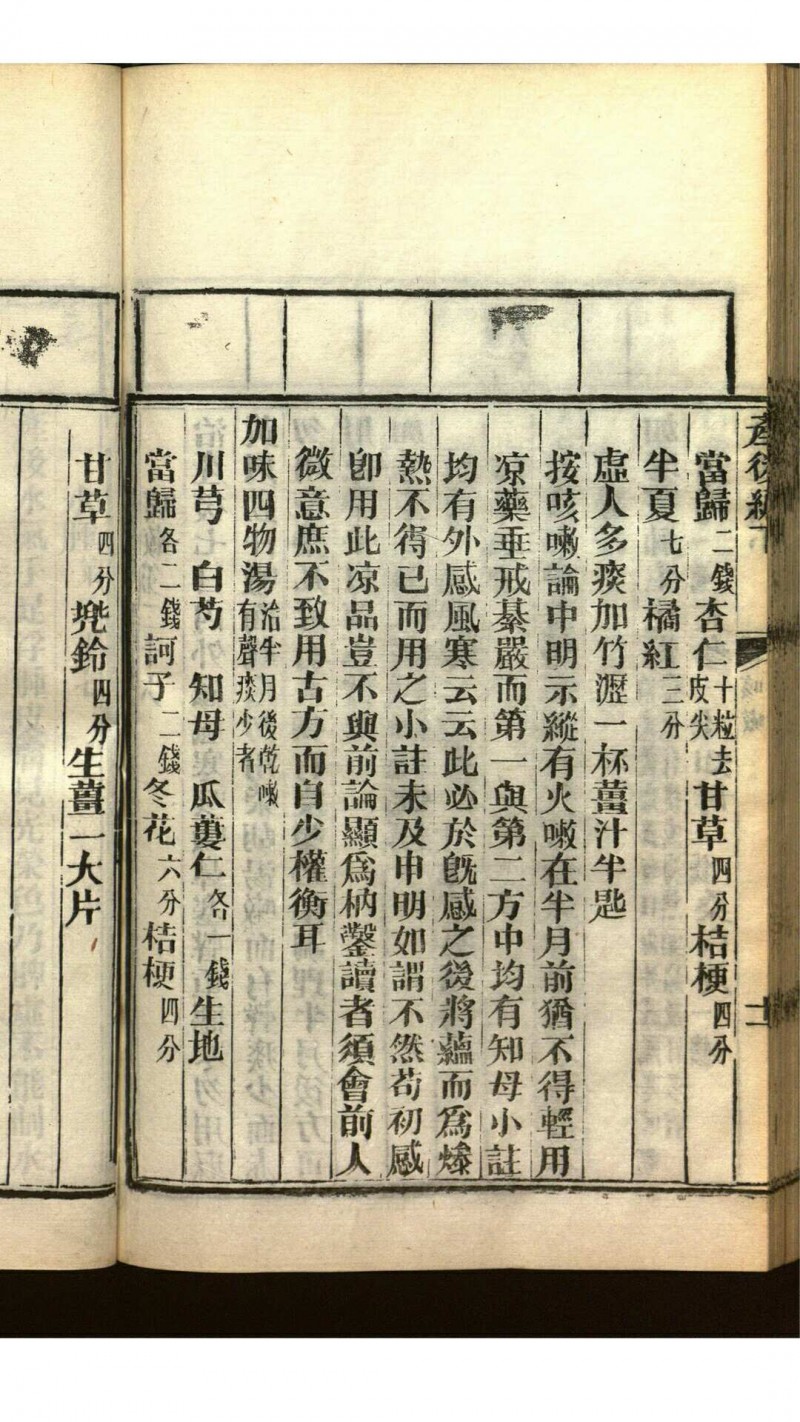 產後編下 十一
當歸二錢杏仁十粒去皮尖甘草四分桔梗四分
半夏七分橘紅三分
虛人多痰加竹瀝一杯薑汁半匙
按咳嗽論中明示縱有火嗽在半月前猶不得輕用
凉藥垂戒綦嚴而第一與第二方中均有知母小註
均有外感風寒云云此必於旣感之後將蘊而爲燥
熱不得已而用之小註未及申明如謂不然苟初感
卽用此凉品豈不與前論顯爲枘鑿讀者須會前人
微意庶不致用古方而自少權衡耳
加味四物湯治半月後乾嗽有聲痰少者
川芎 白芍 知母 瓜蔞仁各一錢生地
當歸各二錢訶子二錢冬花六分桔梗四分
甘草四分兠鈴四分生薑一大片